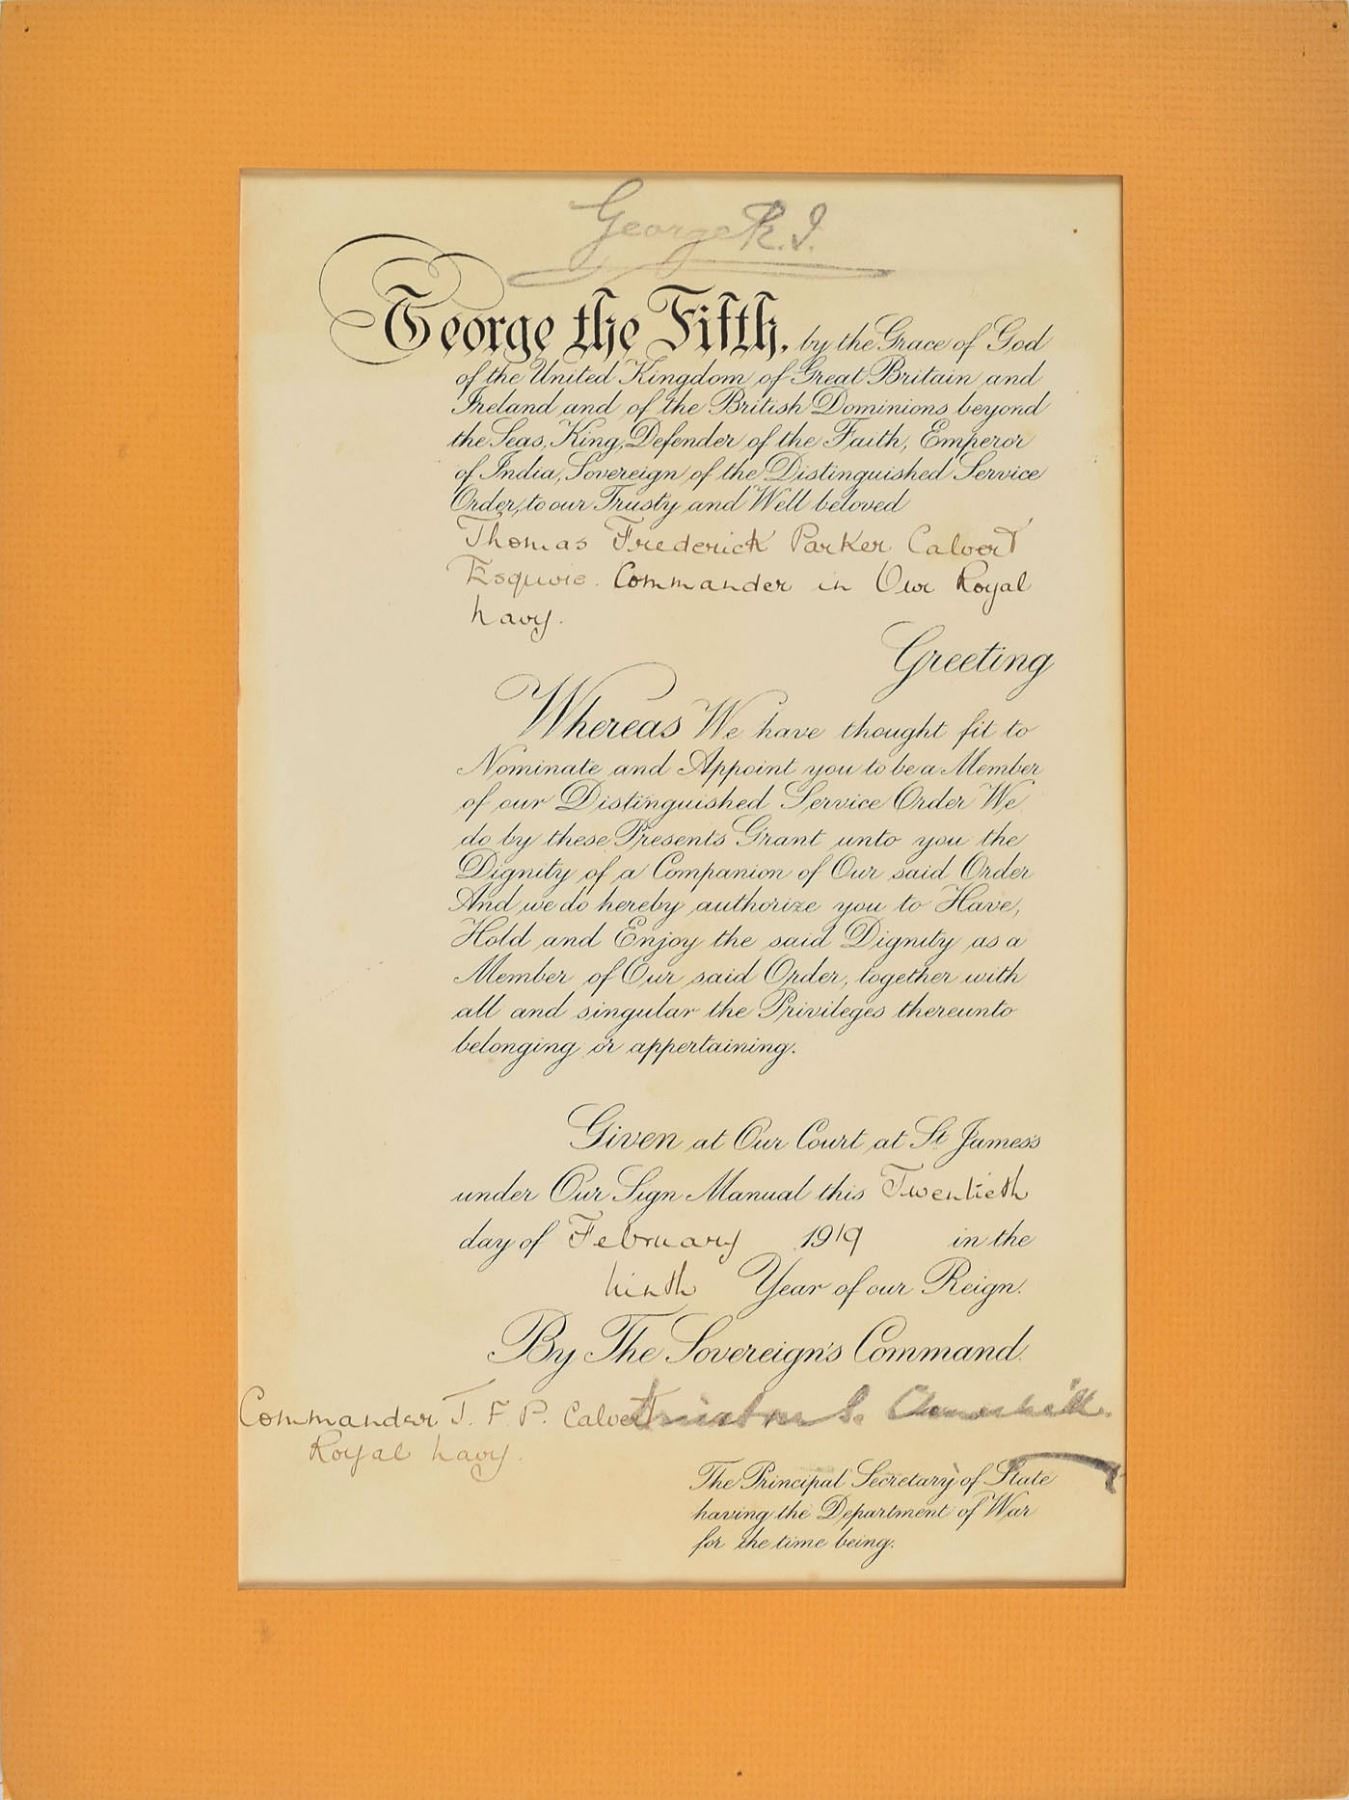 George R.I.
George the Fifth, by the Grace of God
of the United Kingdom of Great Britain and
Ireland and of the British Dominions beyond
the Seas, King, Defender of the Faith, Emperor
of India, Sovereign of the Distinguished Service
Order, to our Trusty and Well beloved
Thomas Frederick Parker Calvert
Esquire. Commander in Our Royal
Navy.
Greeting
Whereas We have thought fit to
Nominate and Appoint you to be a Member
of our Distinguished Service Order We
do by these Presents Grant unto you the
Dignity of a Companion of Our said Order
And we do hereby authorize you to Have,
Hold and Enjoy the said Dignity as a
Member of Our said Order, together with
all and singular the Privileges thereunto
belonging or appertaining.
Given at Our Court at St James's
under Our Sign Manual this Twentieth
day of February 1919 in the
ninth Year of our Reign.
By The Sovereign's Command.
Commander T. F. P. Calvert Winston S. Churchill.
Royal Navy.
The Principal Secretary of State
having the Department of War
for the time being.